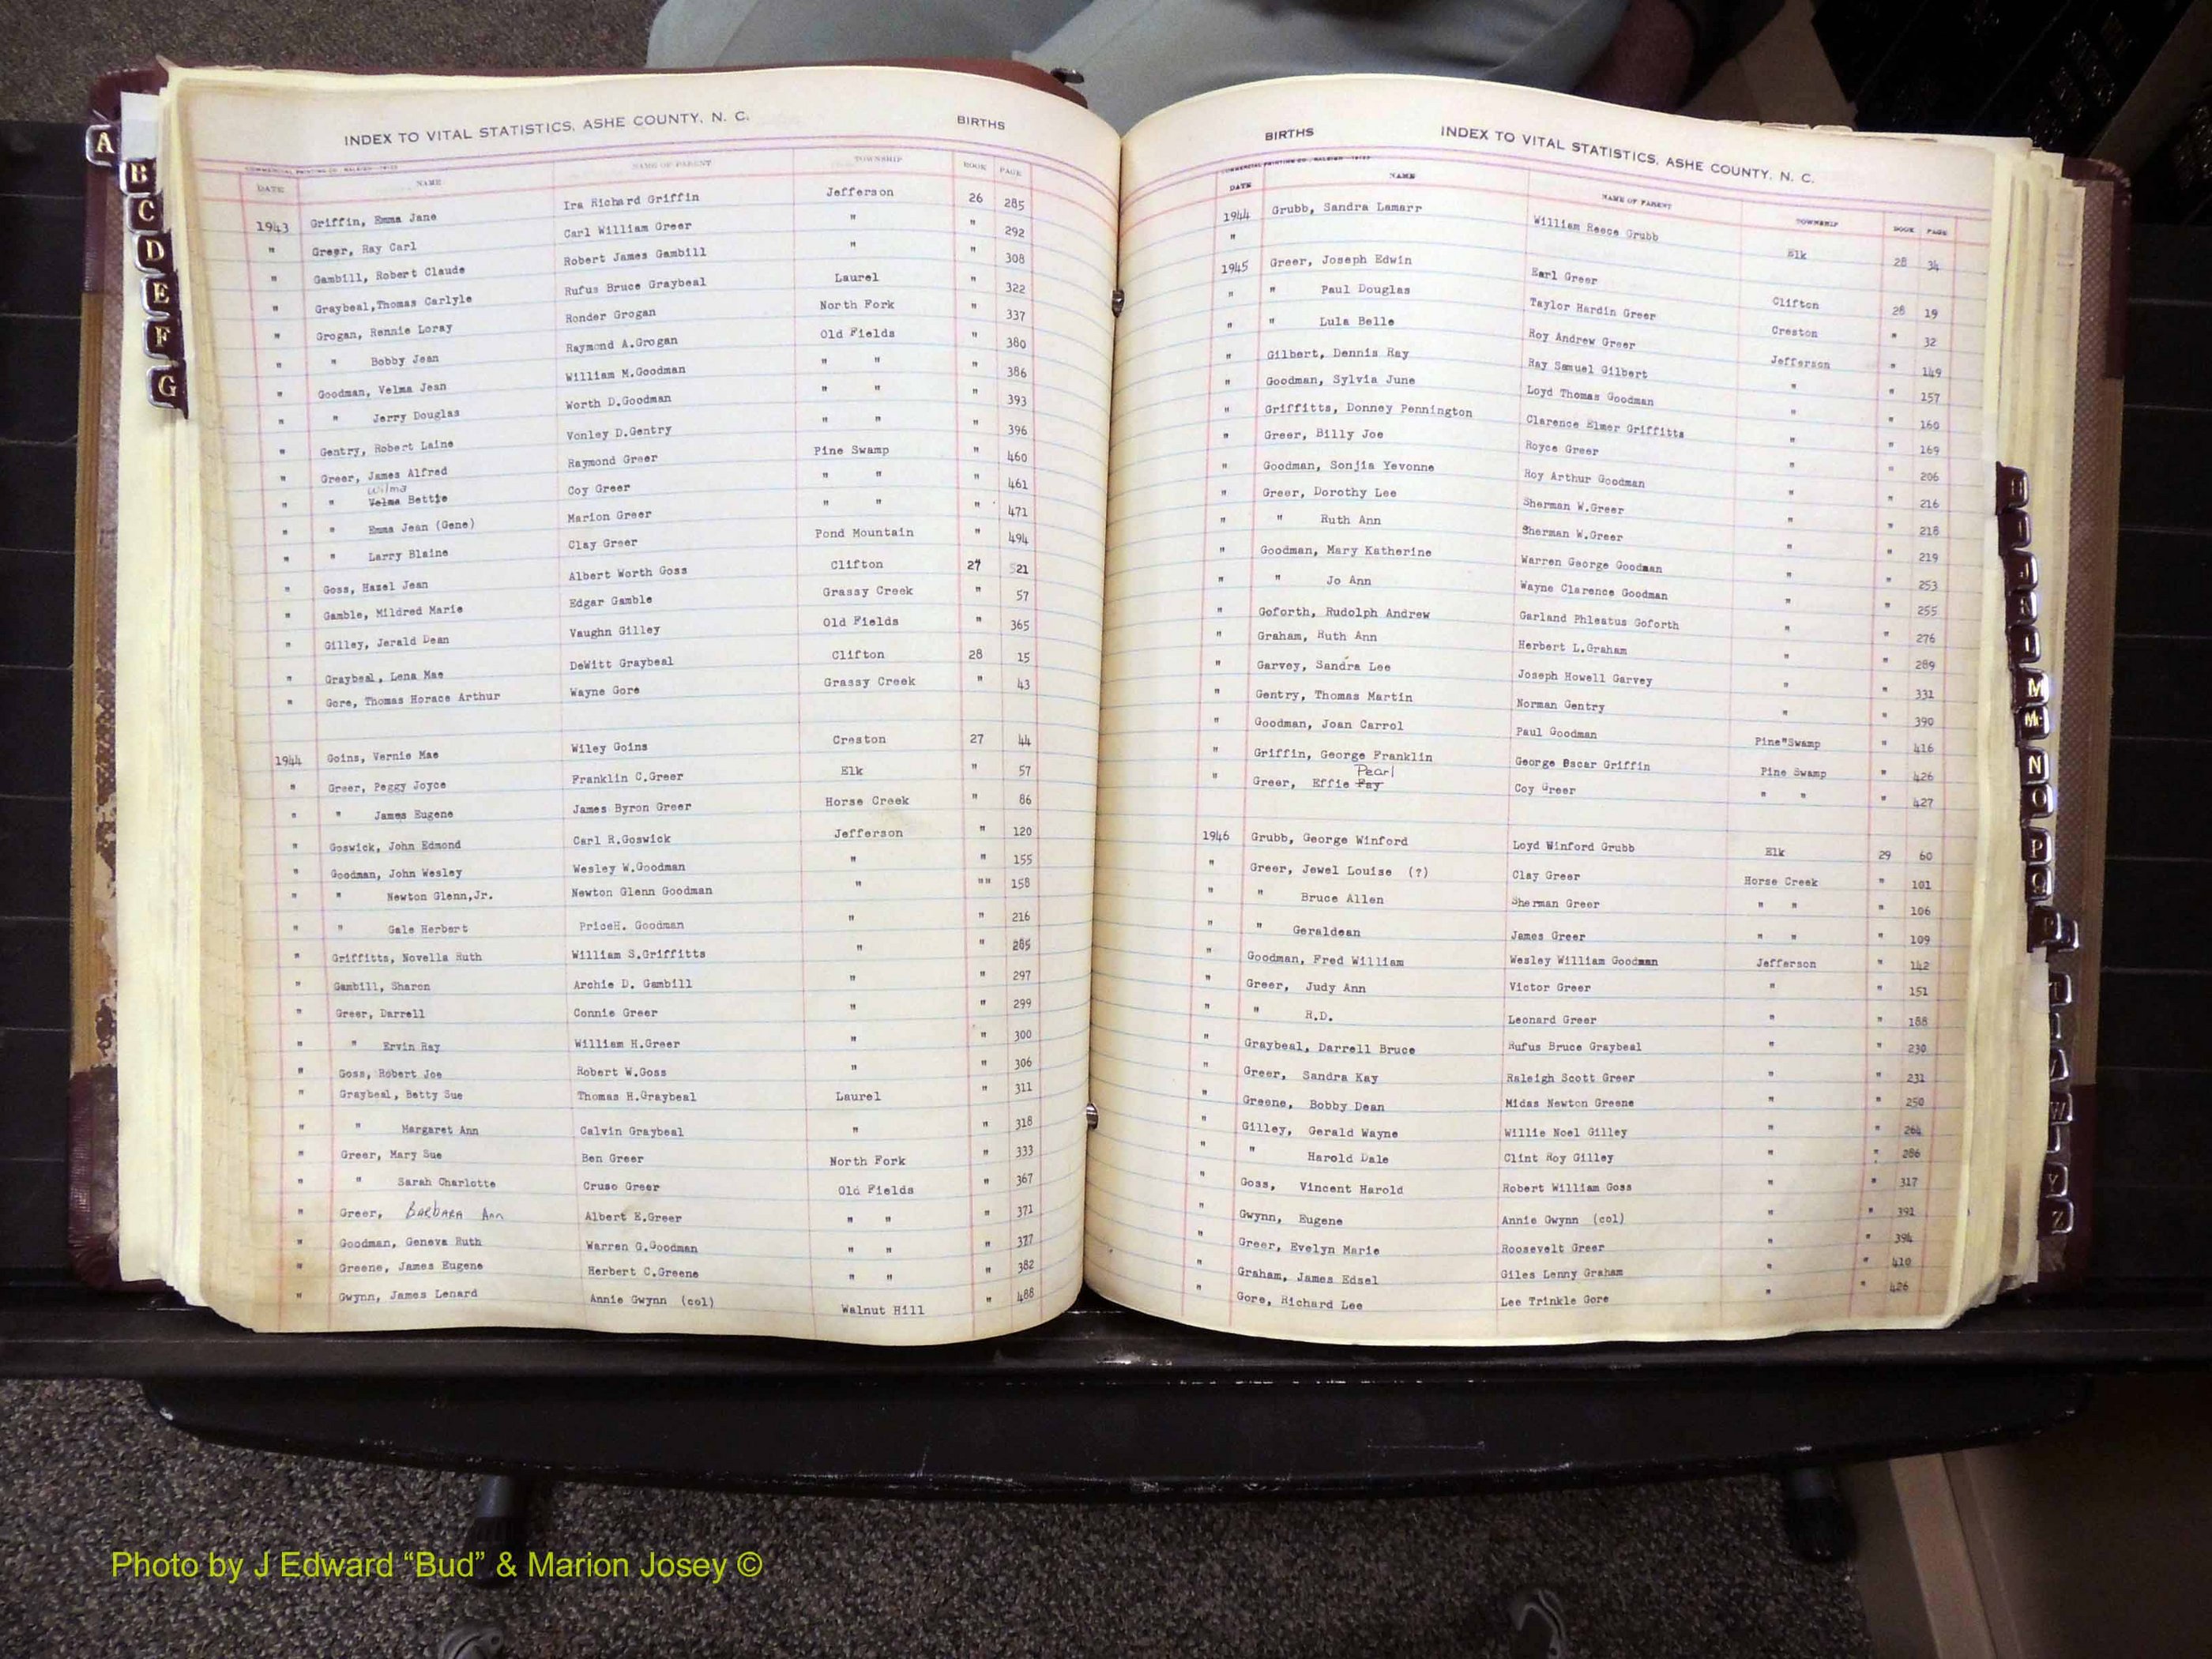 INDEX TO VITAL STATISTICS, ASHE COUNTY, N. C. BIRTHS
COMMERCIAL PRINTING CO., RALEIGH
DATE NAME NAME OF PARENT TOWNSHIP BOOK PAGE
1943 Griffin, Emma Jane Ira Richard Griffin Jefferson 26 285
" Greer, Ray Carl Carl William Greer " " 292
" Gambill, Robert Claude Robert James Gambill " " 308
" Graybeal,Thomas Carlyle Rufus Bruce Graybeal Laurel " 322
" Grogan, Rennie Loray Ronder Grogan North Fork " 337
" " Bobby Jean Raymond A.Grogan Old Fields " 380
" Goodman, Velma Jean William M.Goodman " " " 386
" " Jerry Douglas Worth D.Goodman " " " 393
" Gentry, Robert Laine Vonley D.Gentry " " " 396
" Greer, James Alfred Raymond Greer Pine Swamp " 460
Wilma
" " Velma Bettie Coy Greer " " " 461
" " Emma Jean (Gene) Marion Greer " " " 471
" " Larry Blaine Clay Greer Pond Mountain " 494
" Goss, Hazel Jean Albert Worth Goss Clifton 27 521
" Gamble, Mildred Marie Edgar Gamble Grassy Creek " 57
" Gilley, Jerald Dean Vaughn Gilley Old Fields " 365
" Graybeal, Lena Mae DeWitt Graybeal Clifton 28 15
" Gore, Thomas Horace Arthur Wayne Gore Grassy Creek " 43
1944 Goins, Vernie Mae Wiley Goins Creston 27 44
" Greer, Peggy Joyce Franklin C.Greer Elk " 57
" " James Eugene James Byron Greer Horse Creek " 86
" Goswick, John Edmond Carl R.Goswick Jefferson " 120
" Goodman, John Wesley Wesley W.Goodman " " 155
" " Newton Glenn,Jr. Newton Glenn Goodman " "" 158
" " Gale Herbert PriceH. Goodman " " 216
" Griffitts, Novella Ruth William S.Griffitts " " 285
" Gambill, Sharon Archie D. Gambill " " 297
" Greer, Darrell Connie Greer " " 299
" " Ervin Ray William H.Greer " " 300
" Goss, Robert Joe Robert W.Goss " " 306
" Graybeal, Betty Sue Thomas H.Graybeal Laurel " 311
" " Margaret Ann Calvin Graybeal " " 318
" Greer, Mary Sue Ben Greer North Fork " 333
" " Sarah Charlotte Cruso Greer Old Fields " 367
" Greer, BARBARA Ann Albert E.Greer " " " 371
" Goodman, Geneva Ruth Warren G.Goodman " " " 377
" Greene, James Eugene Herbert C.Greene " " " 382
" Gwynn, James Lenard Annie Gwynn (col) Walnut Hill " 488
BIRTHS INDEX TO VITAL STATISTICS, ASHE COUNTY, N. C.
COMMERCIAL PRINTING CO., RALEIGH
DATE NAME NAME OF PARENT TOWNSHIP BOOK PAGE
1944 Grubb, Sandra Lamarr William Reece Grubb Elk 28 34
"
1945 Greer, Joseph Edwin Earl Greer Clifton 28 19
" " Paul Douglas Taylor Hardin Greer Creston " 32
" " Lula Belle Roy Andrew Greer Jefferson " 149
" Gilbert, Dennis Ray Ray Samuel Gilbert " " 157
" Goodman, Sylvia June Loyd Thomas Goodman " " 160
" Griffitts, Donney Pennington Clarence Elmer Griffitts " " 169
" Greer, Billy Joe Royce Greer " " 206
" Goodman, Sonjia Yevonne Roy Arthur Goodman " " 216
" Greer, Dorothy Lee Sherman W.Greer " " 218
" " Ruth Ann Sherman W.Greer " " 219
" Goodman, Mary Katherine Warren George Goodman " " 253
" " Jo Ann Wayne Clarence Goodman " " 255
" Goforth, Rudolph Andrew Garland Phleatus Goforth " " 276
" Graham, Ruth Ann Herbert L.Graham " " 289
" Garvey, Sandra Lee Joseph Howell Garvey " " 331
" Gentry, Thomas Martin Norman Gentry " " 390
" Goodman, Joan Carrol Paul Goodman Pine"Swamp " 416
" Griffin, George Franklin George Oscar Griffin Pine Swamp " 426
Pearl
" Greer, Effie Fay Coy Greer " " " 427
1946 Grubb, George Winford Loyd Winford Grubb Elk 29 60
" Greer, Jewel Louise (?) Clay Greer Horse Creek " 101
" " Bruce Allen Sherman Greer " " " 106
" " Geraldean James Greer " " " 109
" Goodman, Fred William Wesley William Goodman Jefferson " 142
" Greer, Judy Ann Victor Greer " " 151
" " R.D. Leonard Greer " " 188
" Graybeal, Darrell Bruce Rufus Bruce Graybeal " " 230
" Greer, Sandra Kay Raleigh Scott Greer " " 231
" Greene, Bobby Dean Midas Newton Greene " " 250
" Gilley, Gerald Wayne Willie Noel Gilley " " 264
" " Harold Dale Clint Roy Gilley " " 286
" Goss, Vincent Harold Robert William Goss " " 317
" Gwynn, Eugene Annie Gwynn (col) " " 391
" Greer, Evelyn Marie Roosevelt Greer " " 394
" Graham, James Edsel Giles Lenny Graham " " 410
" Gore, Richard Lee Lee Trinkle Gore " " 426
A
B
C
D
E
F
G
M
N
O
P
Q
W
Y
Z
Photo by J Edward “Bud” & Marion Josey ©